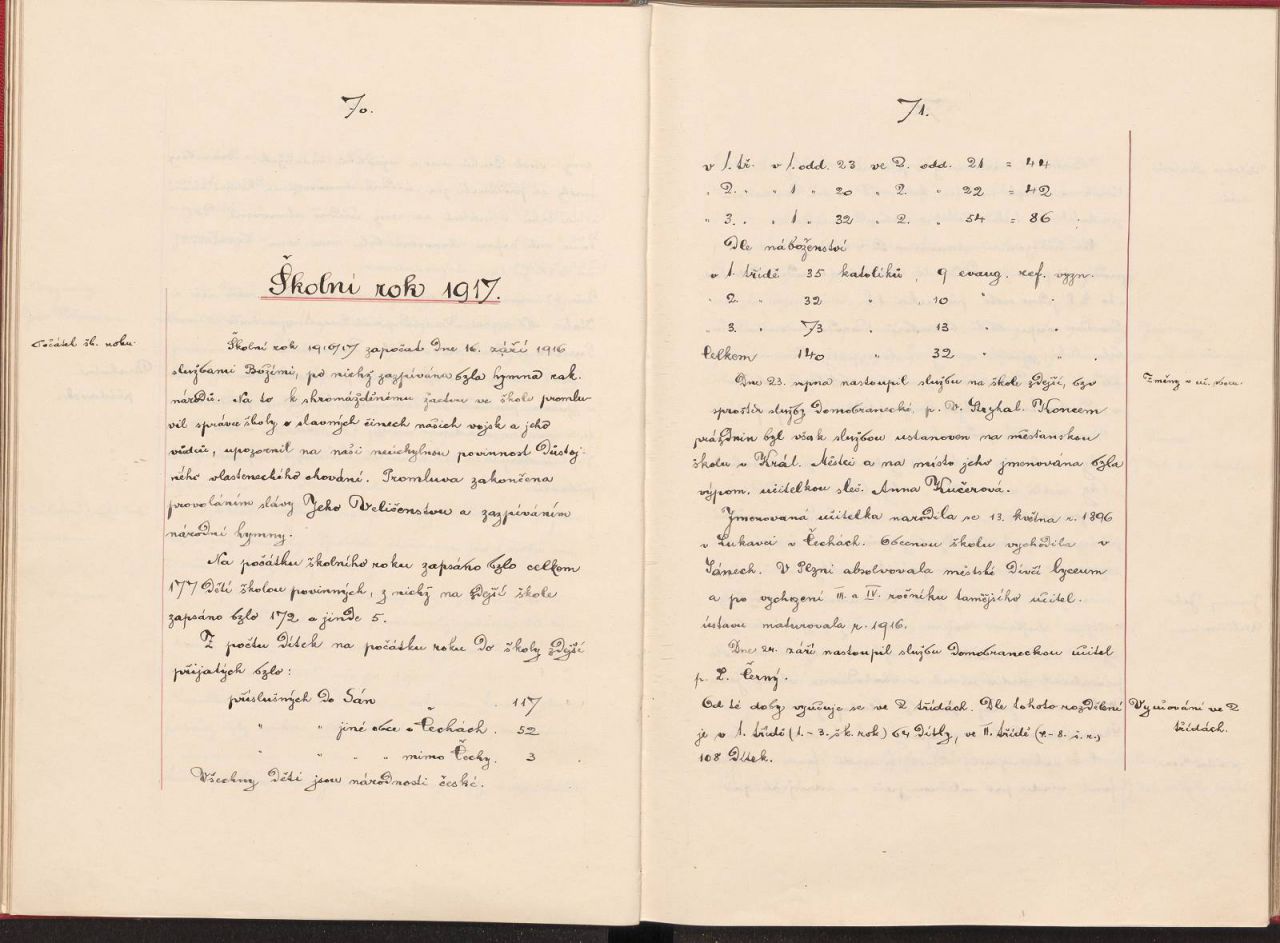 70.
Školní rok 1917.
Počátek šk. roku.
Školní rok 1916/17 započat dne 16. září 1916
službami Božími, po nichž zazpívána byla hymna rak.
národů. Na to k shromážděnému žactvu ve škole promlu-
vil správce školy o slavných činech našich vojsk a jeho
vůdců, upozornil na naši neúchylnou povinnost důstoj-
ného vlasteneckého chování. Promluva zakončena
provoláním slávy Jeho Veličenstvu a zazpíváním
národní hymny.
Na počátku školního roku zapsáno bylo celkem
177 dětí školou povinných, z nichž na zdejší škole
zapsáno bylo 172 a jinde 5.
Z počtu dítek na počátku roku do školy zdejší
přijatých bylo:
příslušných do Sán 117
" " jiné obce v Čechách. 52
" " " " mimo Čechy. 3
Všechny děti jsou národnosti české.
71.
v 1. tř. v 1. odd. 23 ve 2. odd. 21 = 44
" 2. " " 1 " 20 " 2. " 22 = 42
" 3. " " 1 " 32 " 2. " 54 = 86
Dle náboženství
v 1. třídě 35 katolíků, 9 evang. ref. vyzn.
" 2. " 32 " 10 " "
" 3. " 73 " 13 " "
Celkem 140 " 32 " " .
Dne 23. srpna nastoupil službu na škole zdejší, byv
Změny v uč. sboru.
sproštěn služby domobranecké, p. V. Krybal. Koncem
prázdnin byl však službou ustanoven na měšťanskou
školu v Král. Městci a na místo jeho jmenována byla
výpom. učitelkou sleč. Anna Kučerová.
Jmenovaná učitelka narodila se 13. května r. 1896
v Lukavci v Čechách. Obecnou školu vychodila v
Sánech. V Plzni absolvovala městské dívčí lyceum
a po vychození III. a IV. ročníku tamějšího učitel.
ústavu maturovala r. 1916.
Dne 24. září nastoupil službu domobraneckou učitel
p. L. Černý.
Od té doby vyučuje se ve 2 třídách. Dle tohoto rozdělení
Vyučování ve 2
třídách.
je v 1. třídě (1. - 3. šk. rok) 64 dítky, ve II. třídě (4. - 8. š. r.)
108 dítek.